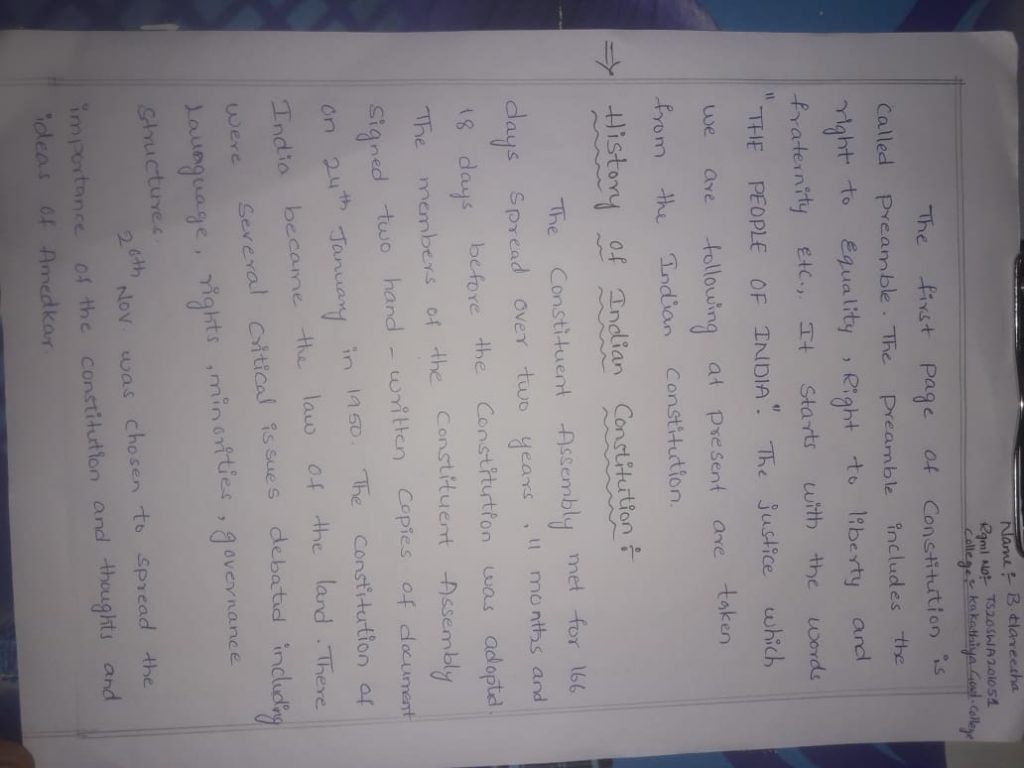 Name :- B. Hareesha
Rgml No:- TS20SWA201051
College :- Kakathiya Govt. College
The first page of Constitution is
called preamble. The preamble includes the
right to equality, Right to liberty and
fraternity etc., It starts with the words
"THE PEOPLE OF INDIA". The justice which
we are following at present are taken
from the Indian constitution.
⇒ History of Indian Constitution :-
The Constituent Assembly met for 166
days spread over two years, 11 months and
18 days before the Constitution was adopted.
The members of the constituent Assembly
signed two hand-written copies of document
on 24th January in 1950. The constitution of
India became the law of the land. There
were several critical issues debated including
Lauaguage, rights, minorities, governance
structures.
26th Nov was chosen to spread the
importance of the constitution and thoughts and
ideas of Amedkar.